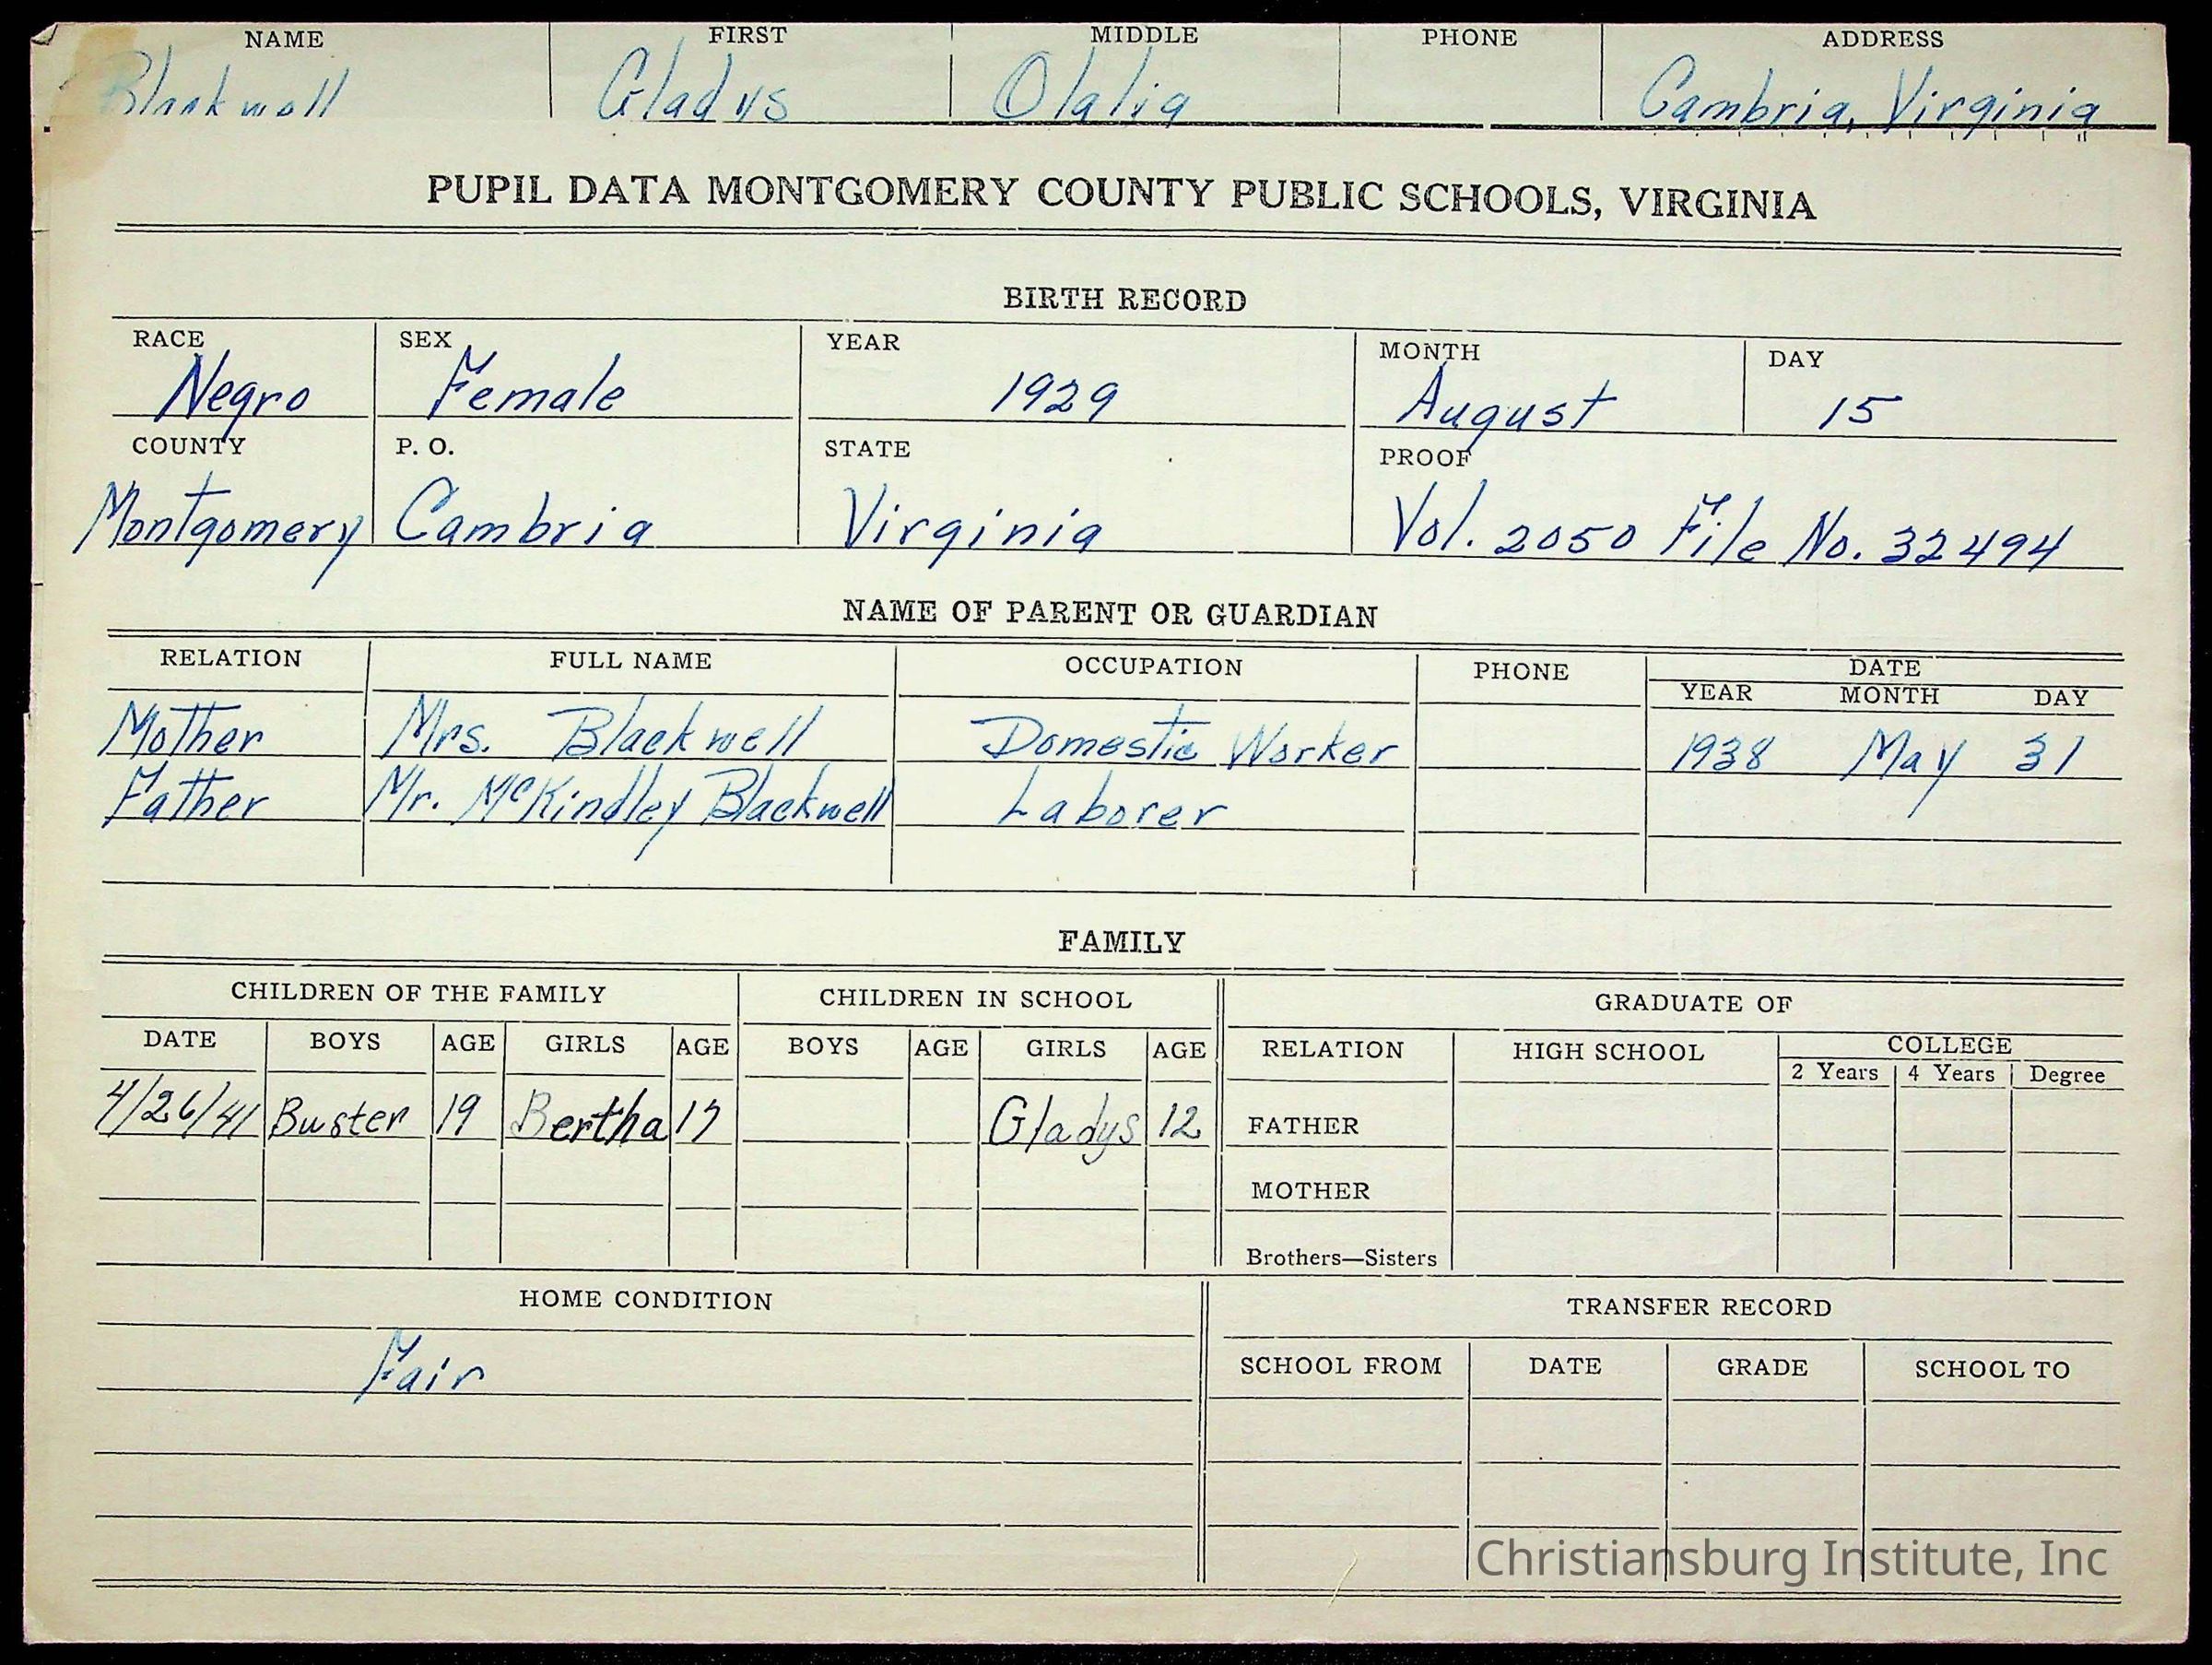 NAME FIRST MIDDLE PHONE ADDRESS
Blackwell Gladys Olalia Cambria, Virginia
PUPIL DATA MONTGOMERY COUNTY PUBLIC SCHOOLS, VIRGINIA
BIRTH RECORD
RACE SEX YEAR MONTH DAY
Negro Female 1929 August 15
COUNTY P. O. STATE PROOF
Montgomery Cambria Virginia Vol. 2050 File No. 32494
NAME OF PARENT OR GUARDIAN
RELATION FULL NAME OCCUPATION PHONE DATE
YEAR MONTH DAY
Mother Mrs. Blackwell Domestic Worker 1938 May 31
Father Mr. McKindley Blackwell Laborer
FAMILY
CHILDREN OF THE FAMILY CHILDREN IN SCHOOL GRADUATE OF
DATE BOYS AGE GIRLS AGE BOYS AGE GIRLS AGE RELATION HIGH SCHOOL COLLEGE
2 Years 4 Years Degree
4/26/41 Buster 19 Bertha 17 Gladys 12 FATHER
MOTHER
Brothers—Sisters
HOME CONDITION TRANSFER RECORD
Fair SCHOOL FROM DATE GRADE SCHOOL TO
Christiansburg Institute, Inc